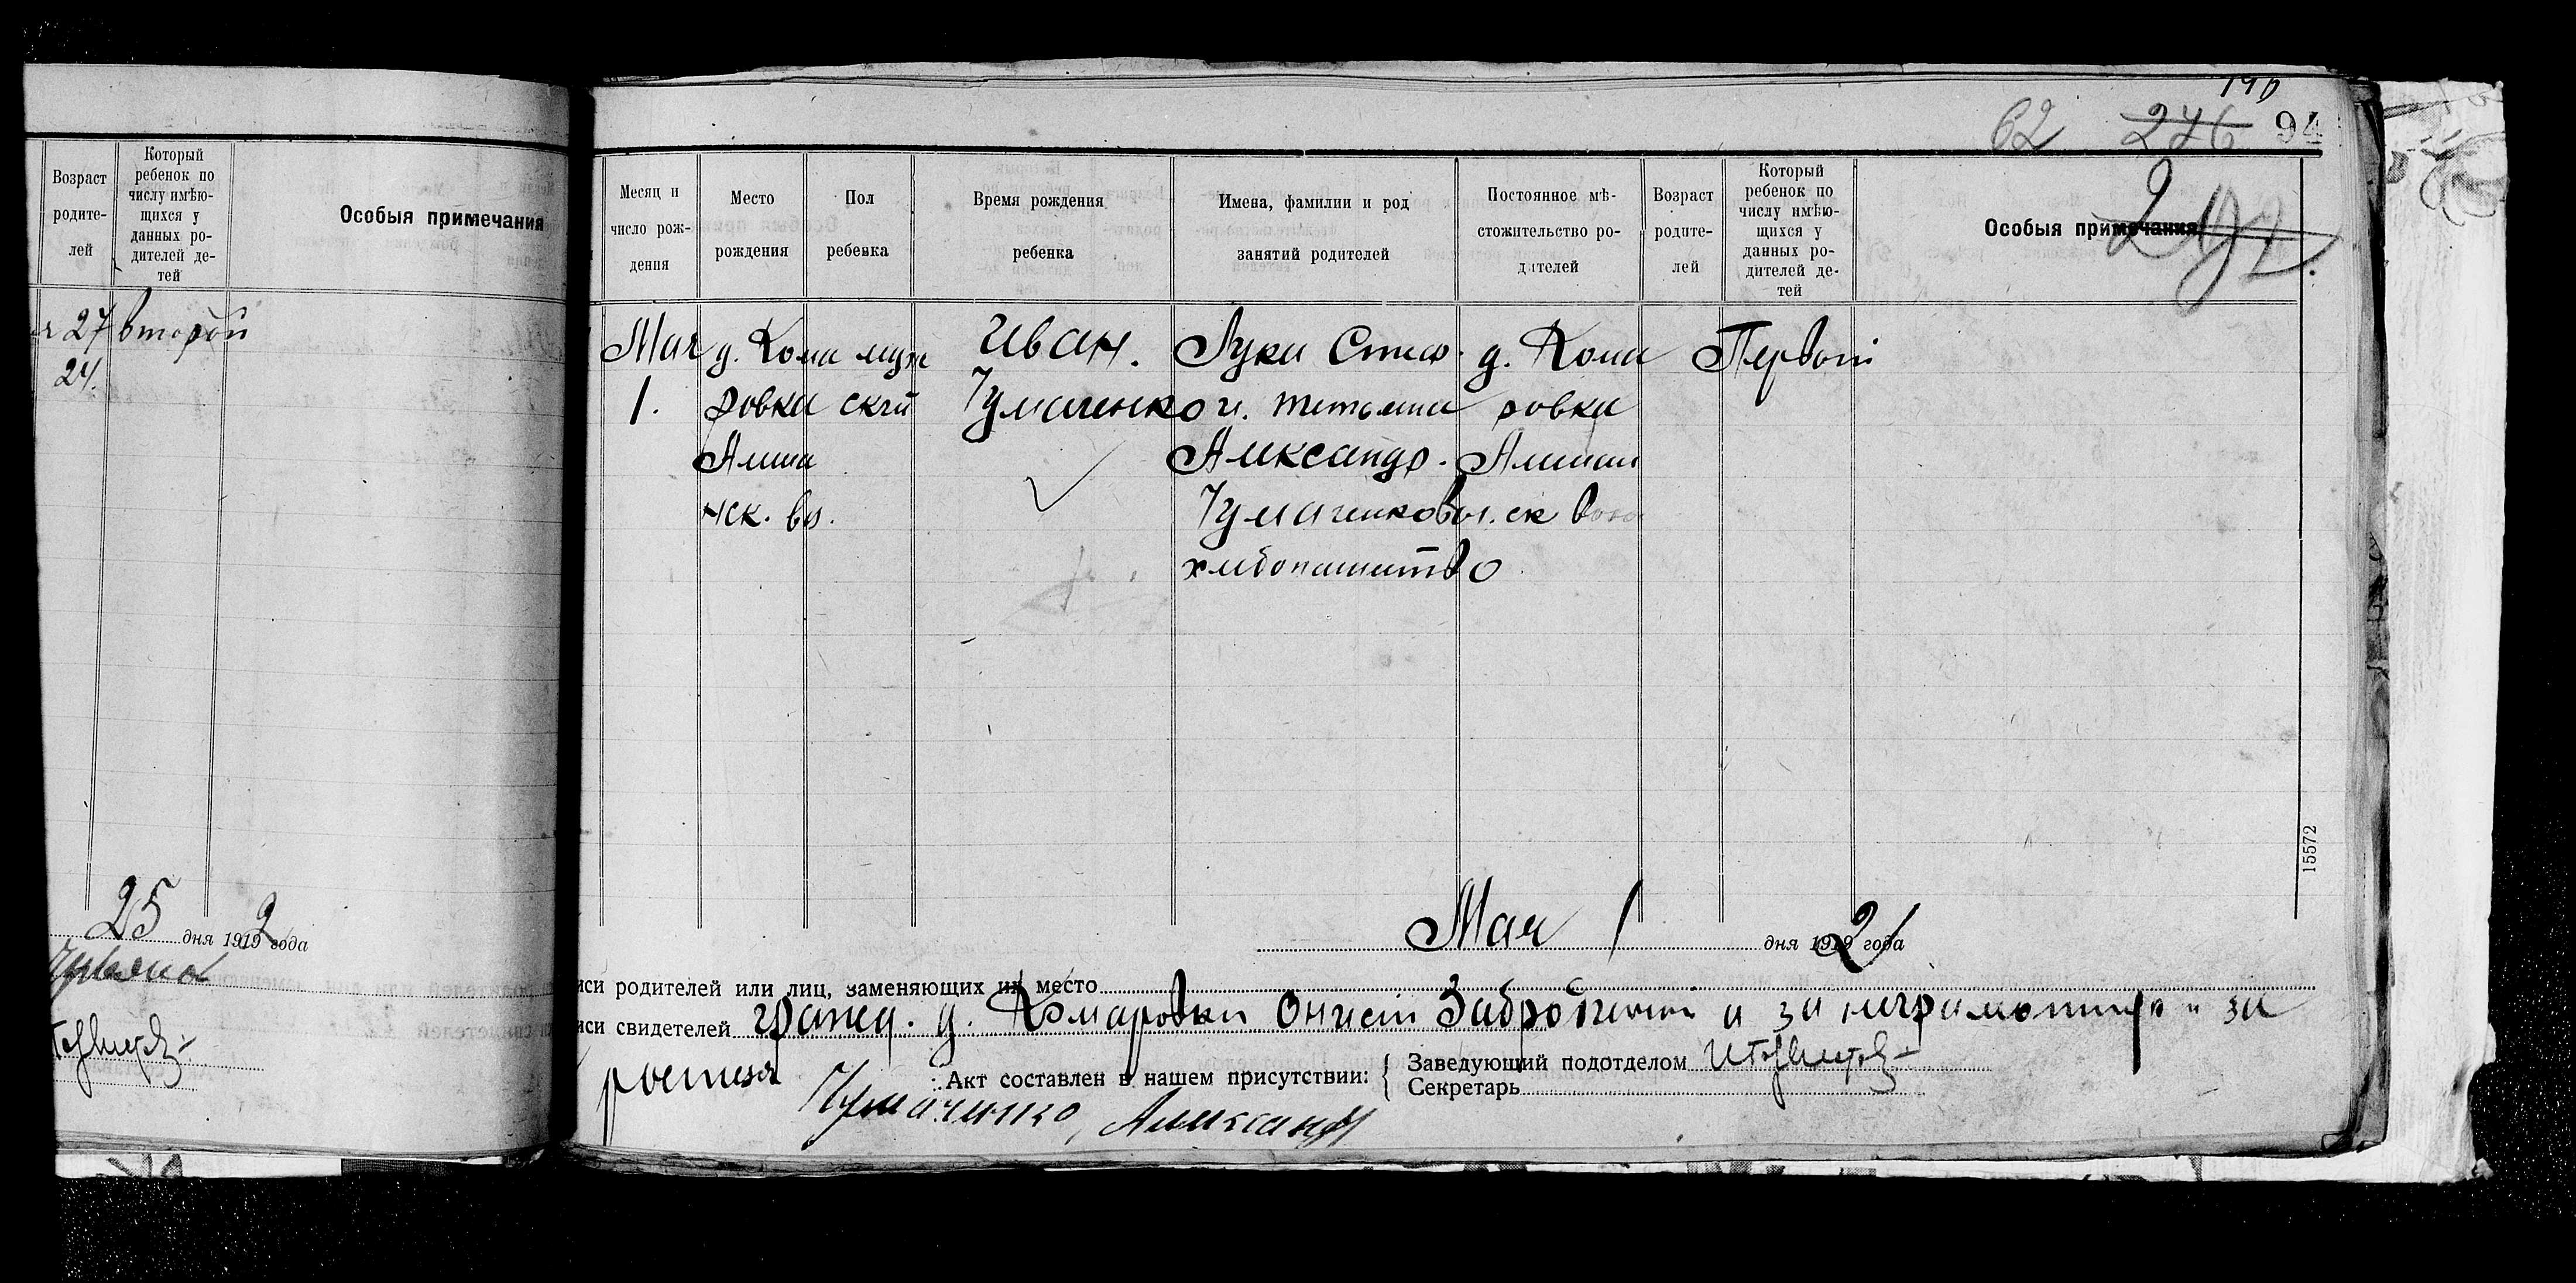 Возраст
родите-
лей
Который
ребенок по
числу имѣю-
щихся у
данных ро-
дителей де-
тей
Особыя примечания
27 второй
24.
25 дня 1919 2 года
190
62 276 94
292
Месяц и
число рож-
дения
Место
рождения
Пол
ребенка
Время рождения
ребенка
Имена, фамилии и род
занятий родителей
Постоянное мѣ-
стожительство ро-
дителей
Возраст
родите-
лей
Который
ребенок по
числу имѣю-
щихся у
данных ро-
дителей де-
тей
Особыя примечания
Мая д. Кома муж Иван. Луки Стеф. д. Кома Первый
1. ровка ский Чумаченко и. ровка
Александр.
нск. во. Чумаченковы. ск
хлебопашество
15572
Мая 1 дня 1919 21 года
иси родителей или лиц, заменяющих их место
иси свидетелей гражд. д. Комаровки и за неграмотн за
Акт составлен в нашем присутствии: { Заведующий подотделом
Секретарь
Чумаченко, Александр